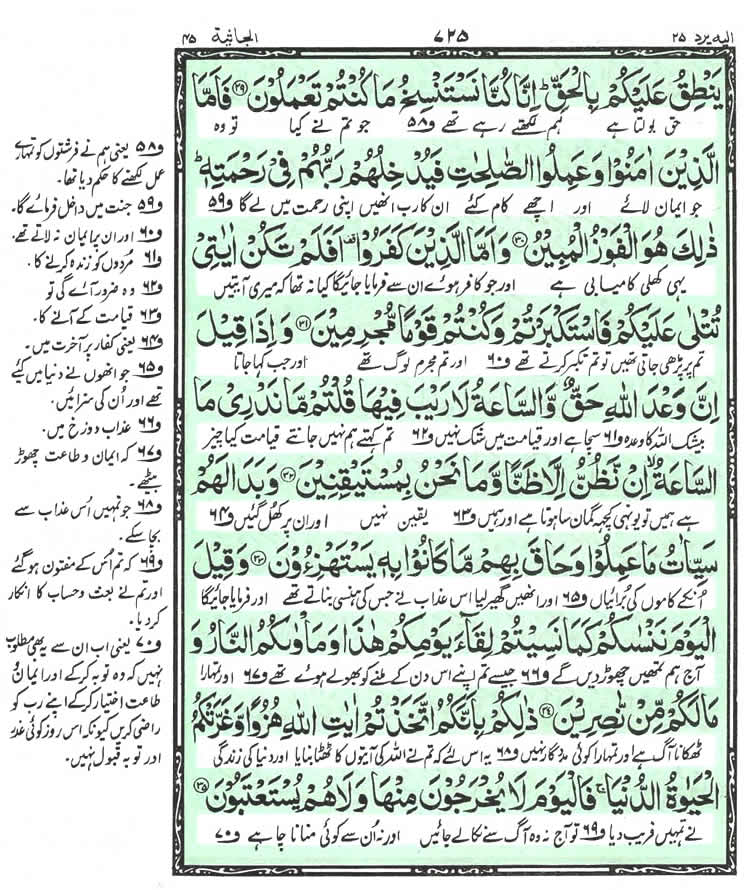 الیه یرد ۲۵
۷۲۵
الجاثیة ۴۵
یَنْطِقُ عَلَیْكُمْ بِالْحَقِّ ؕ اِنَّا كُنَّا نَسْتَنْسِخُ مَا كُنْتُمْ تَعْمَلُوْنَ ۲۹ فَاَمَّا
حق بولتا ہے ہم لکھتے رہے تھے ف۵۸ جو تم نے کیا تو وہ
الَّذِیْنَ اٰمَنُوْا وَ عَمِلُوا الصّٰلِحٰتِ فَیُدْخِلُهُمْ رَبُّهُمْ فِیْ رَحْمَتِهٖ ؕ
جو ایمان لائے اور اچھے کام کئے ان کا رب انھیں اپنی رحمت میں لے گا ف۵۹
ذٰلِكَ هُوَ الْفَوْزُ الْمُبِیْنُ ۳۰ وَ اَمَّا الَّذِیْنَ كَفَرُوْا ۫ اَفَلَمْ تَكُنْ اٰیٰتِیْ
یہی کھلی کامیابی ہے اور جو کافر ہوئے ان سے فرمایا جائیگا کیا نہ تھا کہ میری آیتیں
تُتْلٰى عَلَیْكُمْ فَاسْتَكْبَرْتُمْ وَ كُنْتُمْ قَوْمًا مُّجْرِمِیْنَ ۳۱ وَ اِذَا قِیْلَ
تم پر پڑھی جاتی تھیں تو تم تکبر کرتے تھے ف۶۰ اور تم مجرم لوگ تھے اور جب کہا جاتا
اِنَّ وَعْدَ اللّٰهِ حَقٌّ وَّ السَّاعَةُ لَا رَیْبَ فِیْهَا قُلْتُمْ مَّا نَدْرِیْ مَا
بیشک اللہ کا وعدہ ف۶۱ سچا ہے اور قیامت میں شک نہیں ف۶۲ تم کہتے ہم نہیں جانتے قیامت کیا چیز
السَّاعَةُ ۙ اِنْ نَّظُنُّ اِلَّا ظَنًّا وَّ مَا نَحْنُ بِمُسْتَیْقِنِیْنَ ۳۲ وَ بَدَا لَهُمْ
ہے ہمیں تو یونہی کچھ گمان سا ہوتا ہے اور ہمیں ف۶۳ یقین نہیں اور ان پر کھل گئیں ف۶۴
سَیِّاٰتُ مَا عَمِلُوْا وَ حَاقَ بِهِمْ مَّا كَانُوْا بِهٖ یَسْتَهْزِءُوْنَ ۳۳ وَ قِیْلَ
انکے کاموں کی برائیاں ف۶۵ اور انھیں گھیر لیا اس عذاب نے جس کی ہنسی بناتے تھے اور فرمایا جائیگا
الْیَوْمَ نَنْسٰىكُمْ كَمَا نَسِیْتُمْ لِقَآءَ یَوْمِكُمْ هٰذَا وَ مَاْوٰىكُمُ النَّارُ وَ
آج ہم تمھیں چھوڑ دیں گے ف۶۶ جیسے تم اپنے اس دن کے ملنے کو بھولے ہوئے تھے ف۶۷ اور تمہارا
مَا لَكُمْ مِّنْ نّٰصِرِیْنَ ۳۴ ذٰلِكُمْ بِاَنَّكُمُ اتَّخَذْتُمْ اٰیٰتِ اللّٰهِ هُزُوًا وَّ غَرَّتْكُمُ
ٹھکانا آگ ہے اور تمہارا کوئی مددگار نہیں ف۶۸ یہ اس لئے کہ تم نے اللہ کی آیتوں کا ٹھٹا بنایا اور دنیا کی زندگی
الْحَیٰوةُ الدُّنْیَا ۚ فَالْیَوْمَ لَا یُخْرَجُوْنَ مِنْهَا وَ لَا هُمْ یُسْتَعْتَبُوْنَ ۳۵
نے تمہیں فریب دیا ف۶۹ تو آج نہ وہ آگ سے نکالے جائیں اور نہ اُن سے کوئی منانا چاہے ف۷۰
ف۵۸ یعنی ہم نے فرشتوں کو تمہارے
عمل لکھنے کا حکم دیا تھا۔
ف۵۹ جنت میں داخل فرمائے گا۔
ف۶۰ اور ان پر ایمان نہ لاتے تھے۔
ف۶۱ مُردوں کو زندہ کرنے کا۔
ف۶۲ وہ ضرور آئے گی تو
ف۶۳ قیامت کے آنے کا۔
ف۶۴ یعنی کفار پر آخرت میں۔
ف۶۵ جو انھوں نے دنیا میں کیے
تھے اور اُن کی سزائیں۔
ف۶۶ عذاب دوزخ میں۔
ف۶۷ کہ ایمان و طاعت چھوڑ
بیٹھے۔
ف۶۸ جو تمہیں اُس عذاب سے
بچا سکے۔
ف۶۹ کہ تم اُس کے مفتون ہو گئے
اور تم نے بعث و حساب کا انکار
کر دیا۔
ف۷۰ یعنی اب ان سے یہ بھی مطلوب
نہیں کہ وہ توبہ کر کے اور ایمان و
طاعت اختیار کر کے اپنے رب کو
راضی کریں کیونکہ اس روز کوئی عذر
اور توبہ قبول نہیں۔